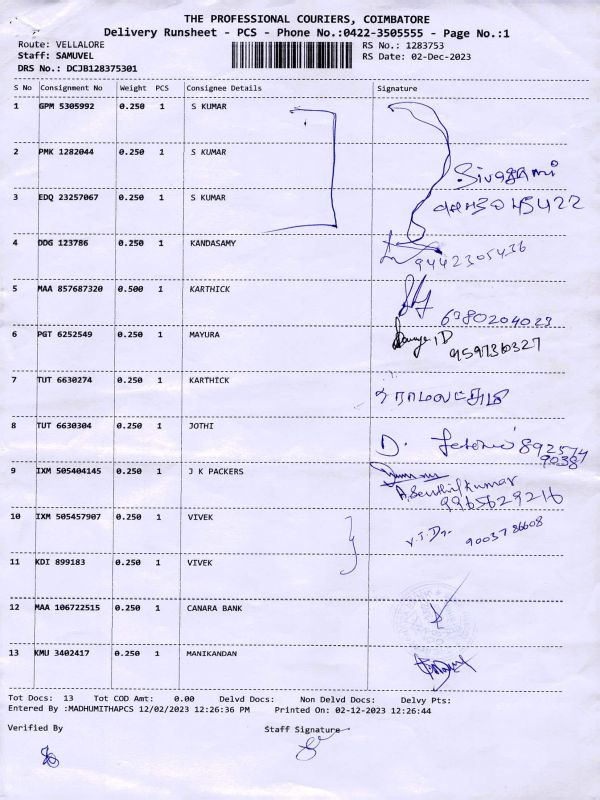 THE PROFESSIONAL COURIERS, COIMBATORE
Delivery Runsheet - PCS - Phone No.:0422-3505555 - Page No.:1
Route: VELLALORE
RS No.: 1283753
Staff: SAMUVEL
RS Date: 02-Dec-2023
DRS No.: DCJB128375301
S No Consignment No Weight PCS Consignee Details Signature
1 GPM 5305992 0.250 1 S KUMAR
2 PMK 1282044 0.250 1 S KUMAR
Sivagami
3 EDQ 23257067 0.250 1 S KUMAR
4 DDG 123786 0.250 1 KANDASAMY
9442305436
5 MAA 857687320 0.500 1 KARTHICK
6380204023
6 PGT 6252549 0.250 1 MAYURA
9597360327
7 TUT 6630274 0.250 1 KARTHICK
8 TUT 6630304 0.250 1 JOTHI
D. 892574
9038
9 IXM 505404145 0.250 1 J K PACKERS
A. Senthil Kumar
9965629216
10 IXM 505457907 0.250 1 VIVEK
9003786608
11 KDI 899183 0.250 1 VIVEK
12 MAA 106722515 0.250 1 CANARA BANK
13 KMU 3402417 0.250 1 MANIKANDAN
Tot Docs: 13 Tot COD Amt: 0.00 Delvd Docs: Non Delvd Docs: Delvy Pts:
Entered By :MADHUMITHAPCS 12/02/2023 12:26:36 PM Printed On: 02-12-2023 12:26:44
Verified By Staff Signature